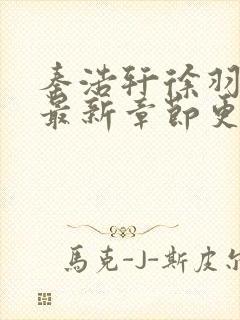 秦浩轩徐羽
最新章节更
馬克-J-斯皮尔